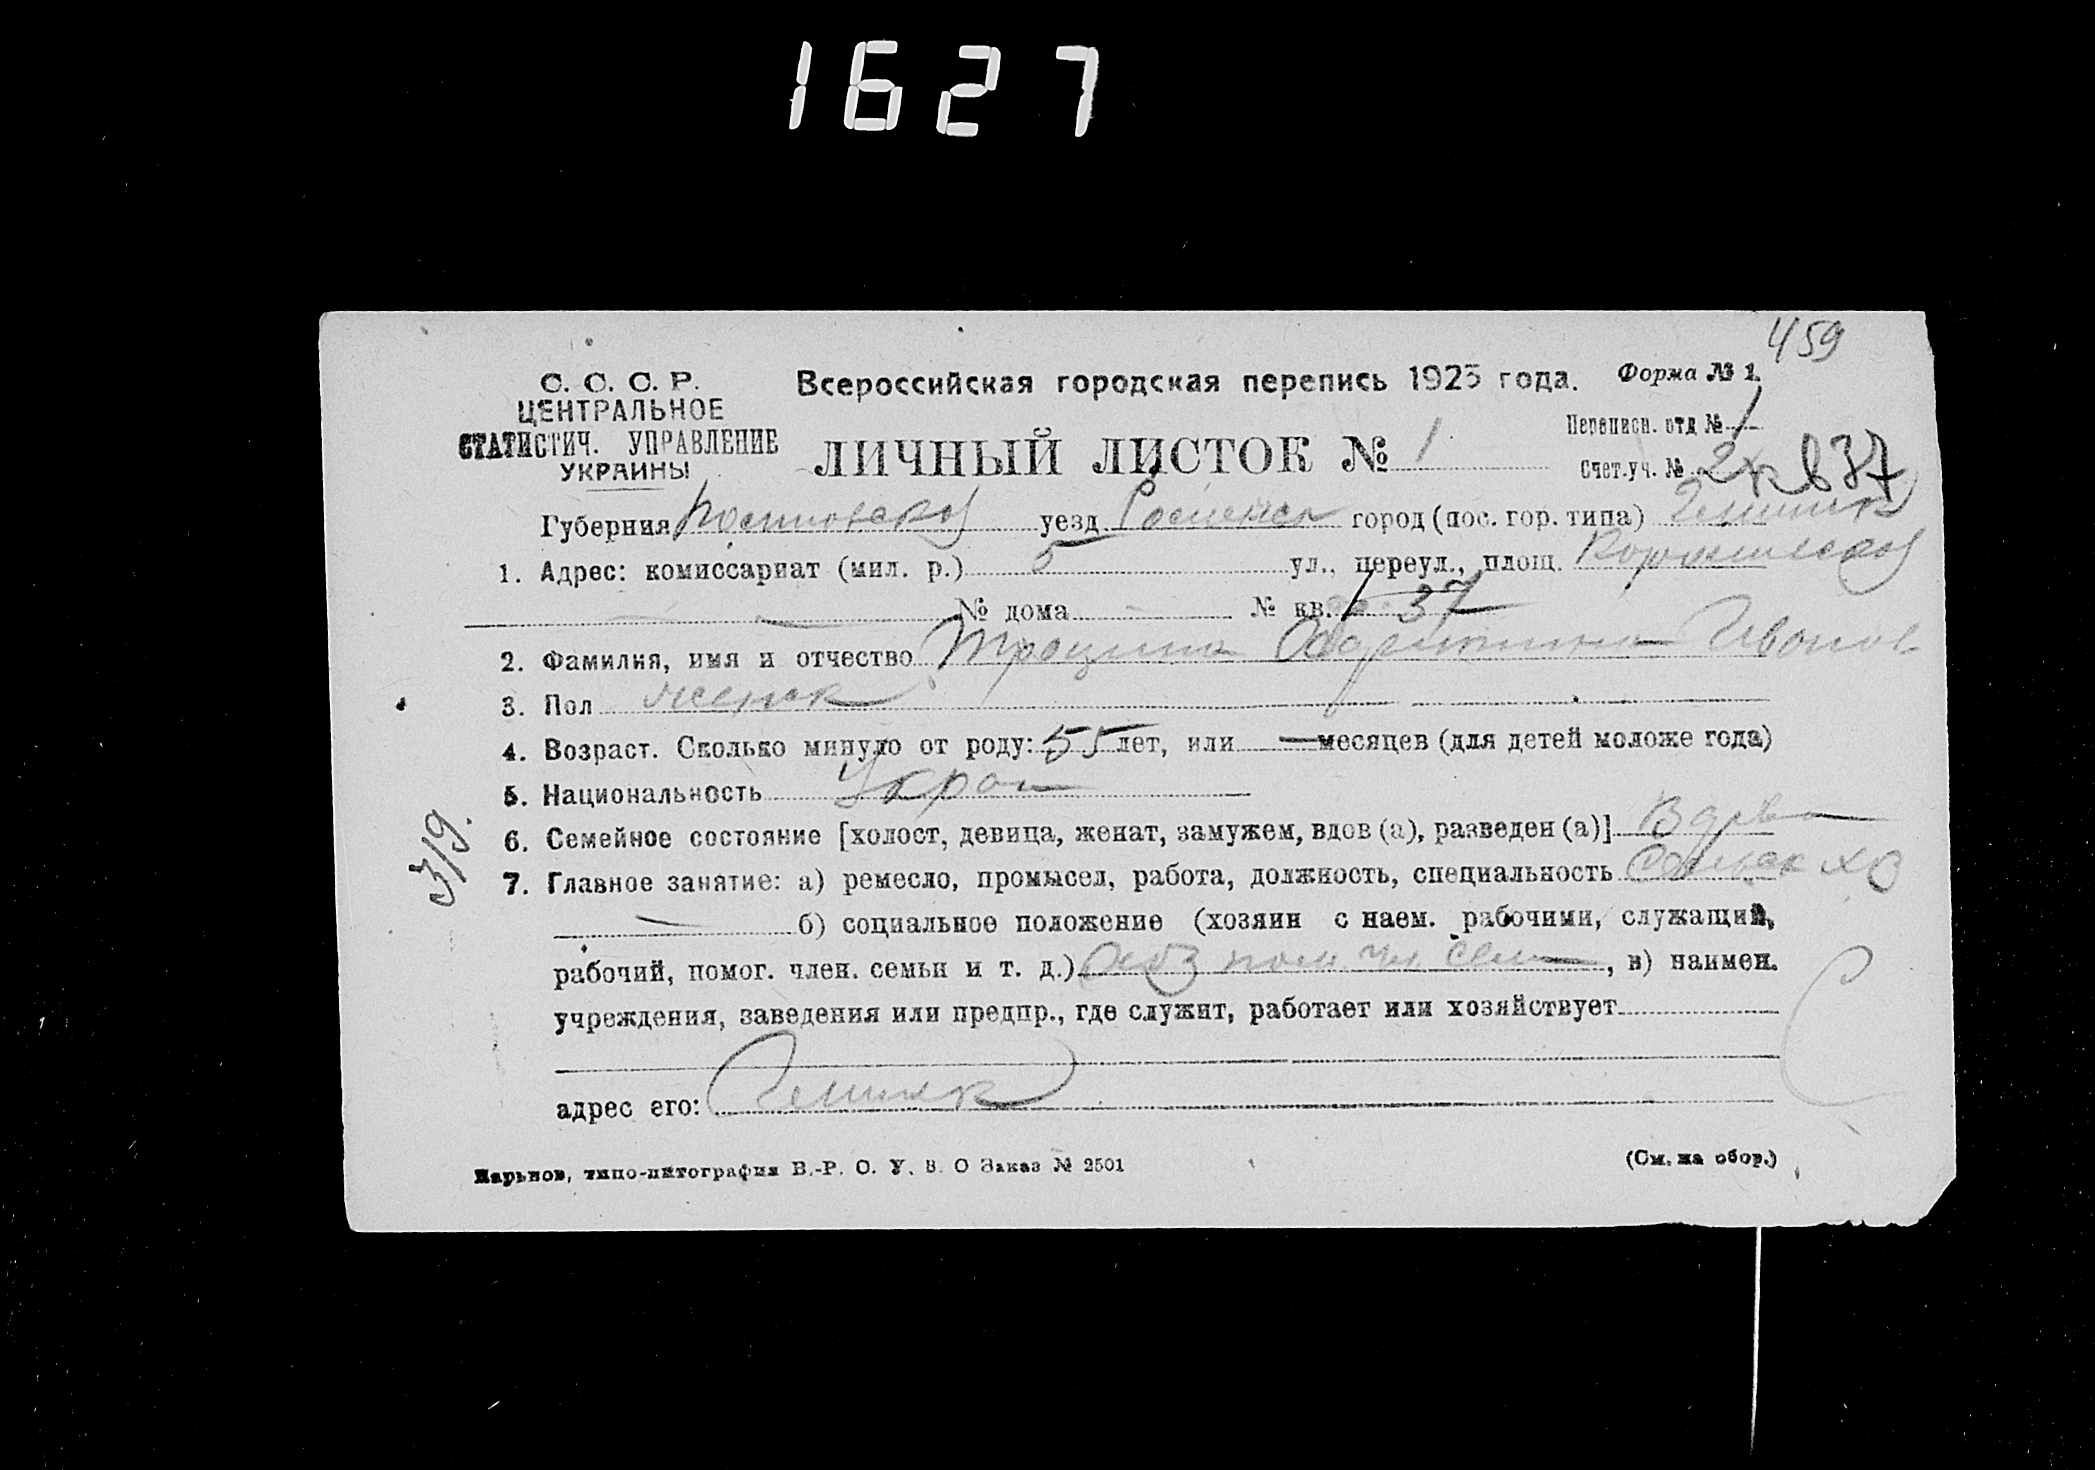 1627
459
С. С. С. Р.
ЦЕНТРАЛЬНОЕ
СТАТИСТИЧ. УПРАВЛЕНИЕ
УКРАИНЫ
Всероссийская городская перепись 1923 года. Форма № 1.
Переписн. отд № 1
ЛИЧНЫЙ ЛИСТОК № 1
Счет.уч. № 2
Губерния уезд город (пос. гор. типа)
1. Адрес: комиссариат (мил. р.) 5 ул., переул., площ.
№ дома № кв. 37
2. Фамилия, имя и отчество Иванов
3. Пол женск
4. Возраст. Сколько минуло от роду: 55 лет, или — месяцев (для детей моложе года)
5. Национальность Укра
6. Семейное состояние [холост, девица, женат, замужем, вдов (а), разведен (а)] Вдова
7. Главное занятие: а) ремесло, промысел, работа, должность, специальность Сельск хоз
б) социальное положение (хозяин с наем. рабочими, служащий,
рабочий, помог. член. семьи и т. д.) пом. чл. сем , в) наимен.
учреждения, заведения или предпр., где служит, работает или хозяйствует
адрес его:
319.
Харьков, типо-литография В.-Р. О. У. В. О Заказ № 2501
(См. на обор.)